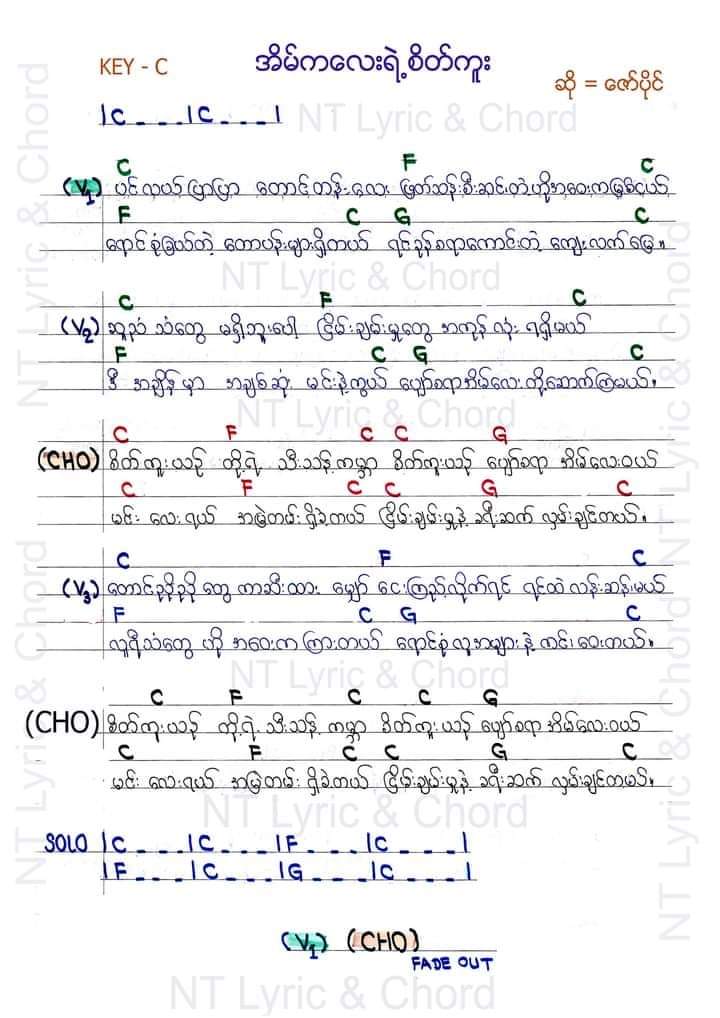 KEY - C
အိမ်ကလေးရဲ့စိတ်ကူး
ဆို = ဇော်ပိုင်
|C _ _ _ |C _ _ _ |
NT Lyric & Chord
C F C
(V1) ပင်လယ်ပြာပြာ တောင်တန်းလေး ဖြတ်သန်းစီးဆင်းတဲ့ ဟိုအဝေးကမြစ်ငယ်
F C G C
ရောင်စုံခြယ်တဲ့ တောပန်းများရှိတယ် ရင်ခုန်စရာကောင်းတဲ့ ကျေးလက်မြေ။
NT Lyric & Chord
C F C
(V2) ဆူညံသံတွေ မရှိဘူးပေါ့ ငြိမ်းချမ်းမှုတွေ အကုန်လုံး ရရှိမယ်
F C G C
ဒီ အချိန်မှာ အချစ်ဆုံး မင်းနဲ့ကွယ် ပျော်စရာအိမ်လေးတို့ဆောက်ကြမယ်။
NT Lyric & Chord
C F C C G
(CHO) စိတ်ကူးယဉ် တို့ရဲ့ သီးသန့်ကမ္ဘာ စိတ်ကူးယဉ် ပျော်စရာ အိမ်လေးဝယ်
C F C C G C
မင်း လေးရယ် အမြဲတမ်းရှိခဲ့တယ် ငြိမ်းချမ်းမှုနဲ့ ခရီးဆက် လှမ်းချင်တယ်။
C F C
(V3) တောင်ညိုညိုတွေ ကာဆီးထား မျှော် ငေးကြည့်လိုက်ရင် ရင်ထဲ လန်းဆန်းမယ်
F C G C
လူရီသံတွေ ဟို အဝေးက ကြားတယ် ရောင်စုံလူအများနဲ့ ကင်းဝေးတယ်။
NT Lyric & Chord
C F C C G
(CHO) စိတ်ကူးယဉ် တို့ရဲ့ သီးသန့် ကမ္ဘာ စိတ်ကူးယဉ် ပျော်စရာအိမ်လေးဝယ်
C F C C G C
မင်း လေးရယ် အမြဲတမ်း ရှိခဲ့တယ် ငြိမ်းချမ်းမှုနဲ့ ခရီးဆက် လှမ်းချင်တယ်။
NT Lyric & Chord
SOLO |C _ _ _ |C _ _ _ |F _ _ _ |C _ _ _ |
|F _ _ _ |C _ _ _ |G _ _ _ |C _ _ _ |
(V1) (CHO)
FADE OUT
NT Lyric & Chord